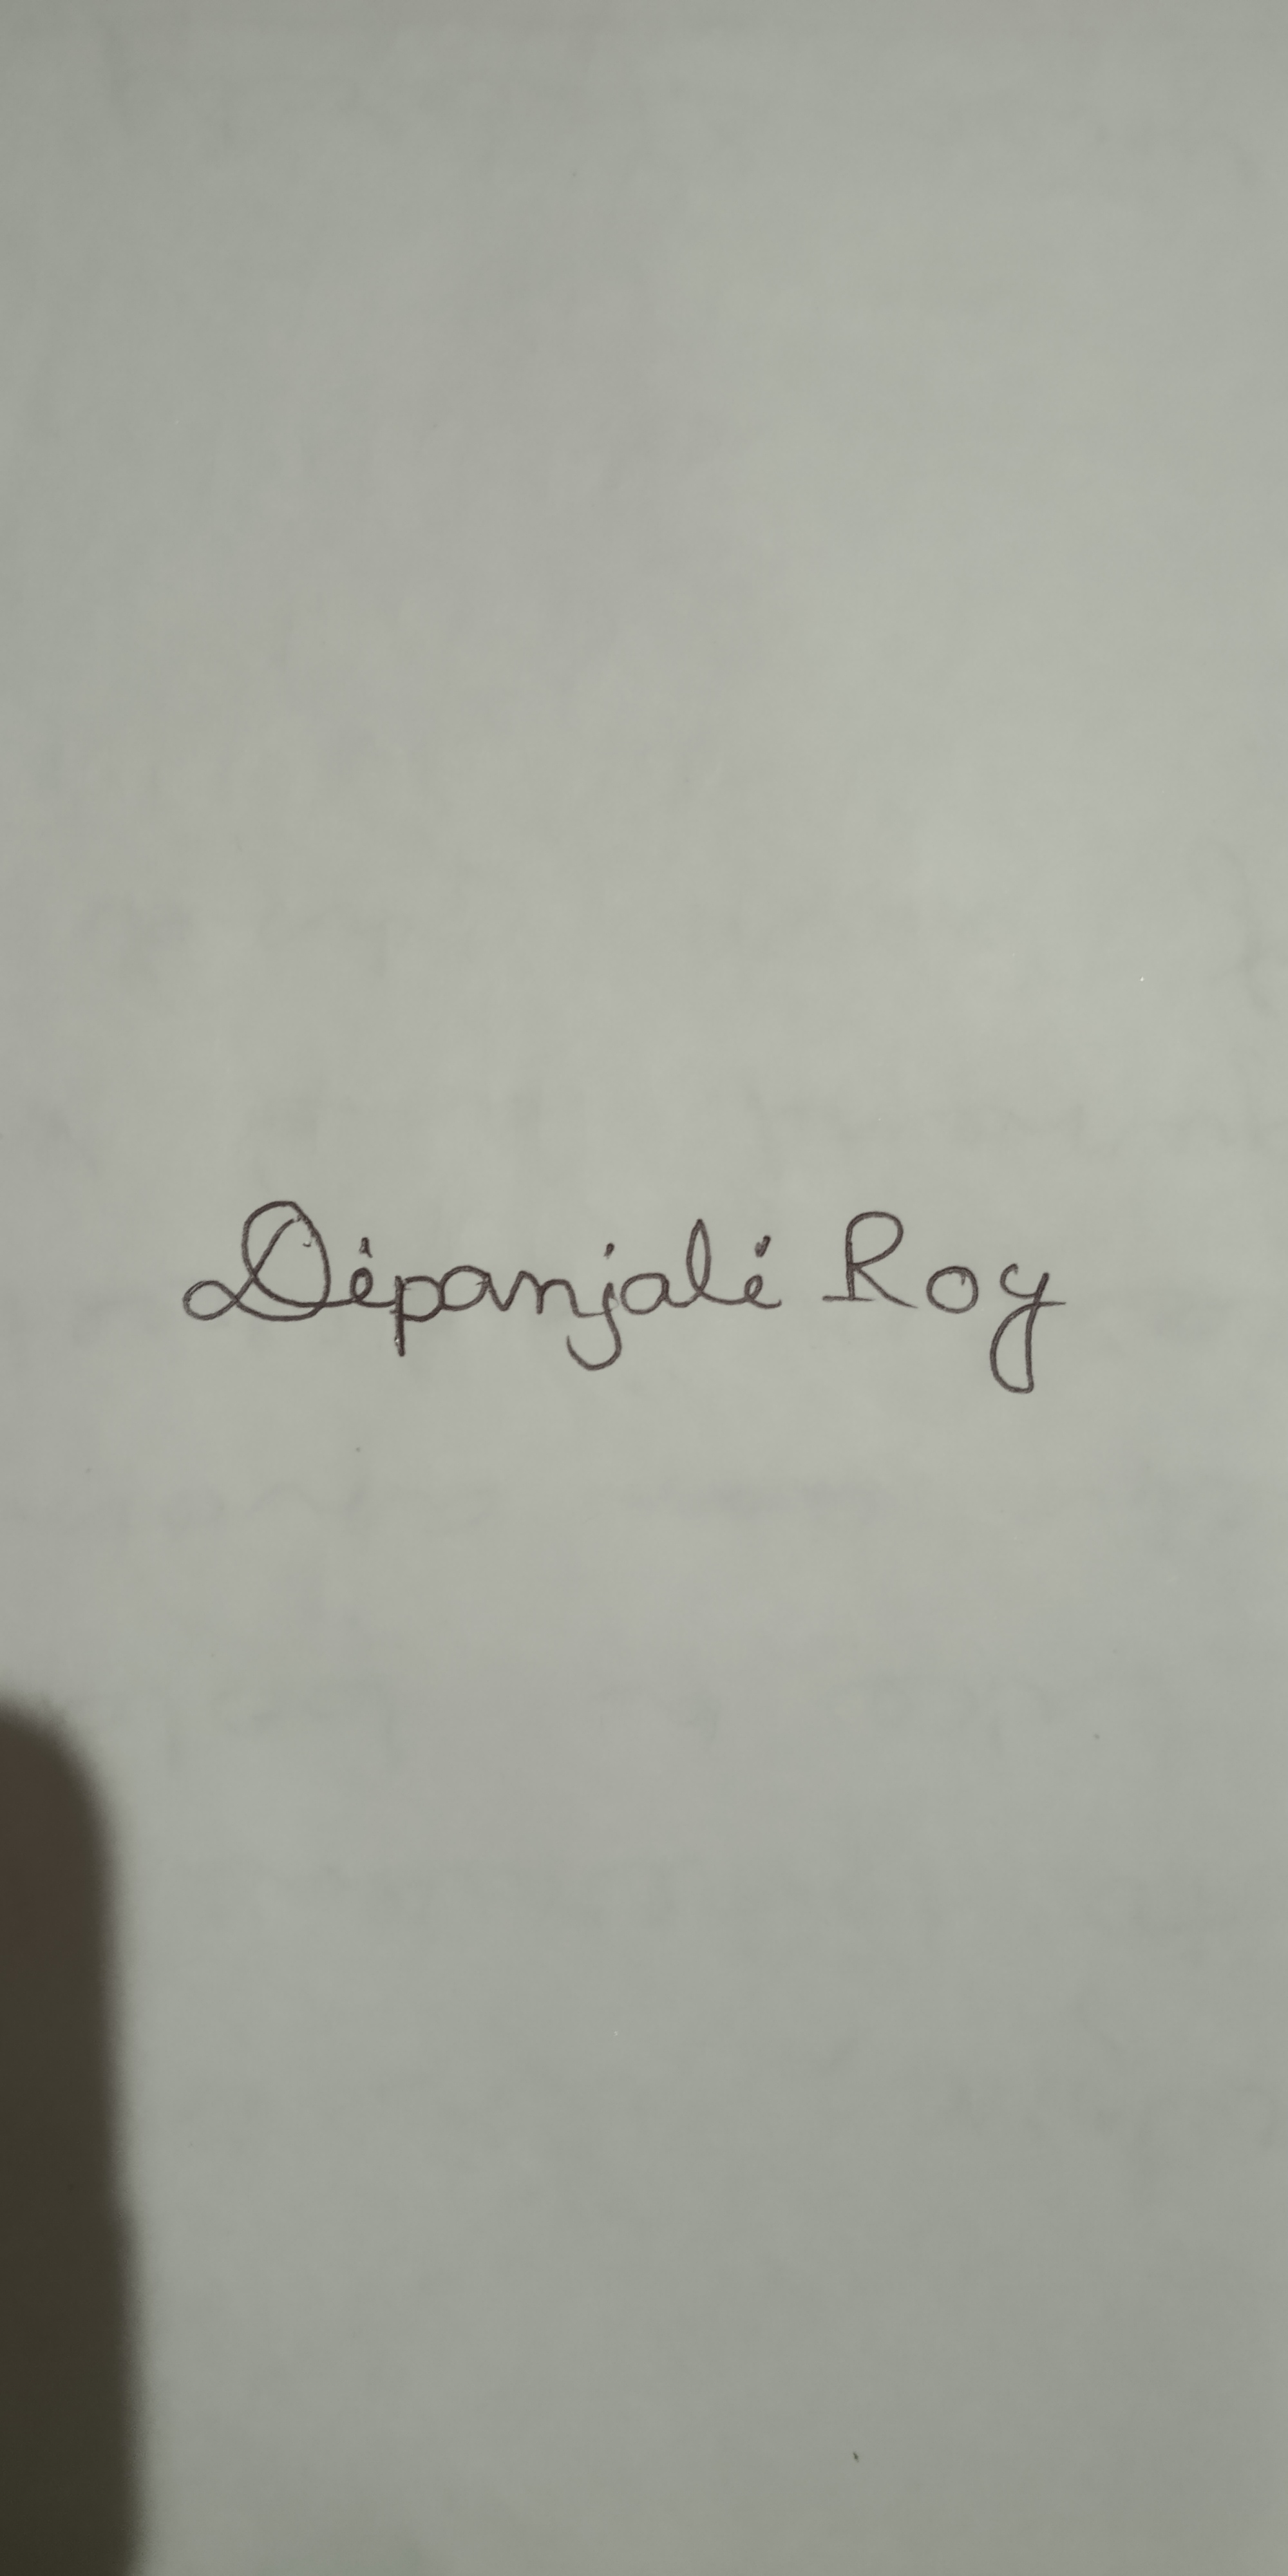 Dipanjali Roy